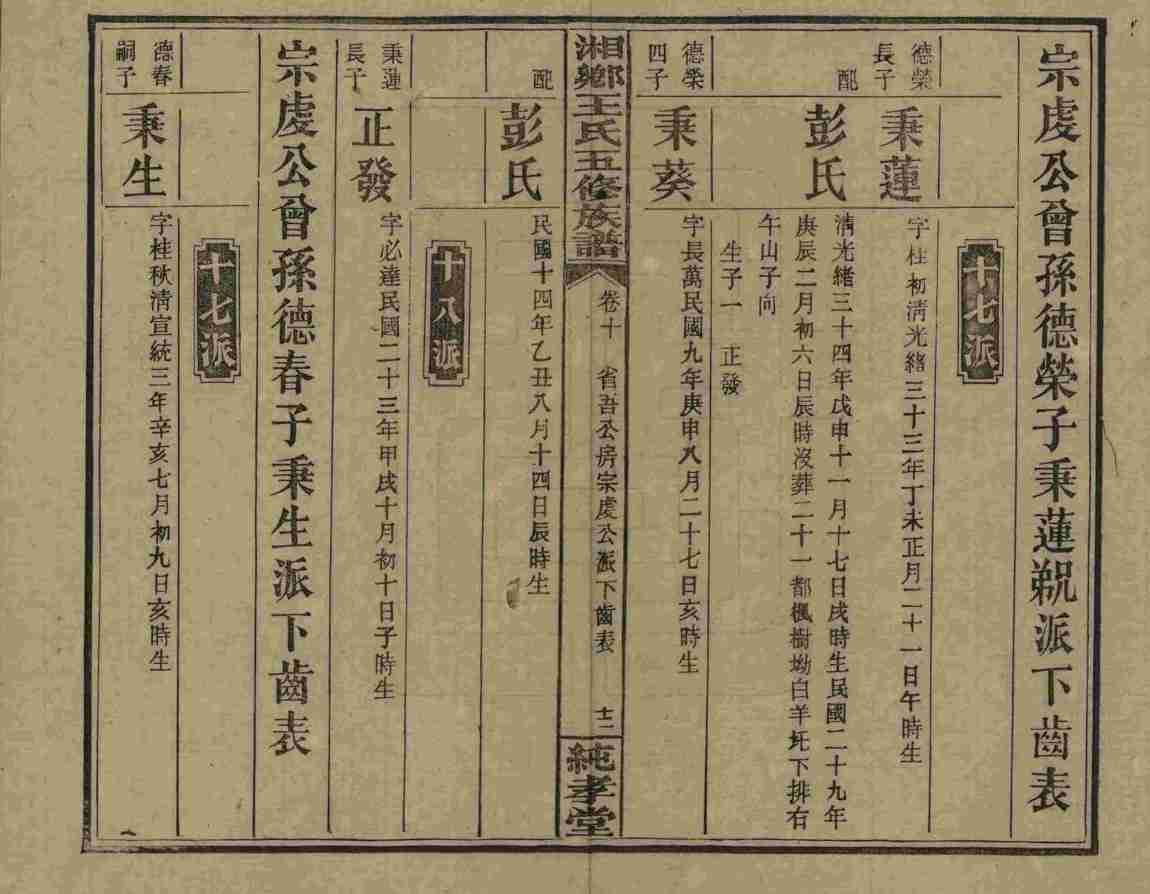 宗虔公曾孫德榮子秉蓮覘派下齒表
十七派
德榮
長子
秉蓮
字桂初淸光緖三十三年丁未正月二十一日午時生
配
彭氏
淸光緖三十四年戊申十一月十七日戌時生民國二十九年
庚辰二月初六日辰時沒葬二十一都楓樹坳白羊圫下排右
午山子向
生子一 正發
德榮
四子
秉葵
字長萬民國九年庚申八月二十七日亥時生
湘鄉王氏五修族譜
卷十 省吾公房宗虔公派下齒表
十二
純孝堂
配
彭氏
民國十四年乙丑八月十四日辰時生
十八派
秉蓮
長子
正發
字必達民國二十三年甲戌十月初十日子時生
宗虔公曾孫德春子秉生派下齒表
十七派
德春
嗣子
秉生
字桂秋淸宣統三年辛亥七月初九日亥時生